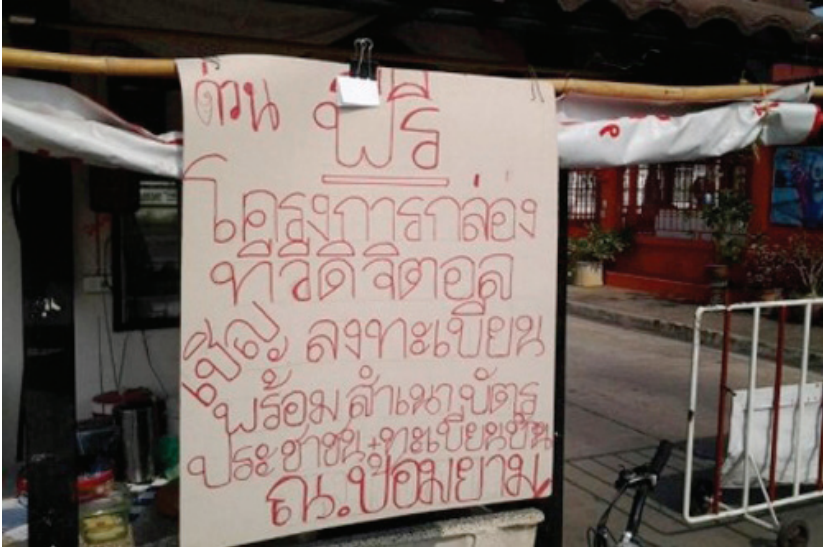 ด่วน ฟรี
โครงการกล่อง
ทีวีดิจิตอล
เชิญ ลงทะเบียน
พร้อมสำเนาบัตร
ประชาชน+ทะเบียนบ้าน
ณ.ป้อมยาม